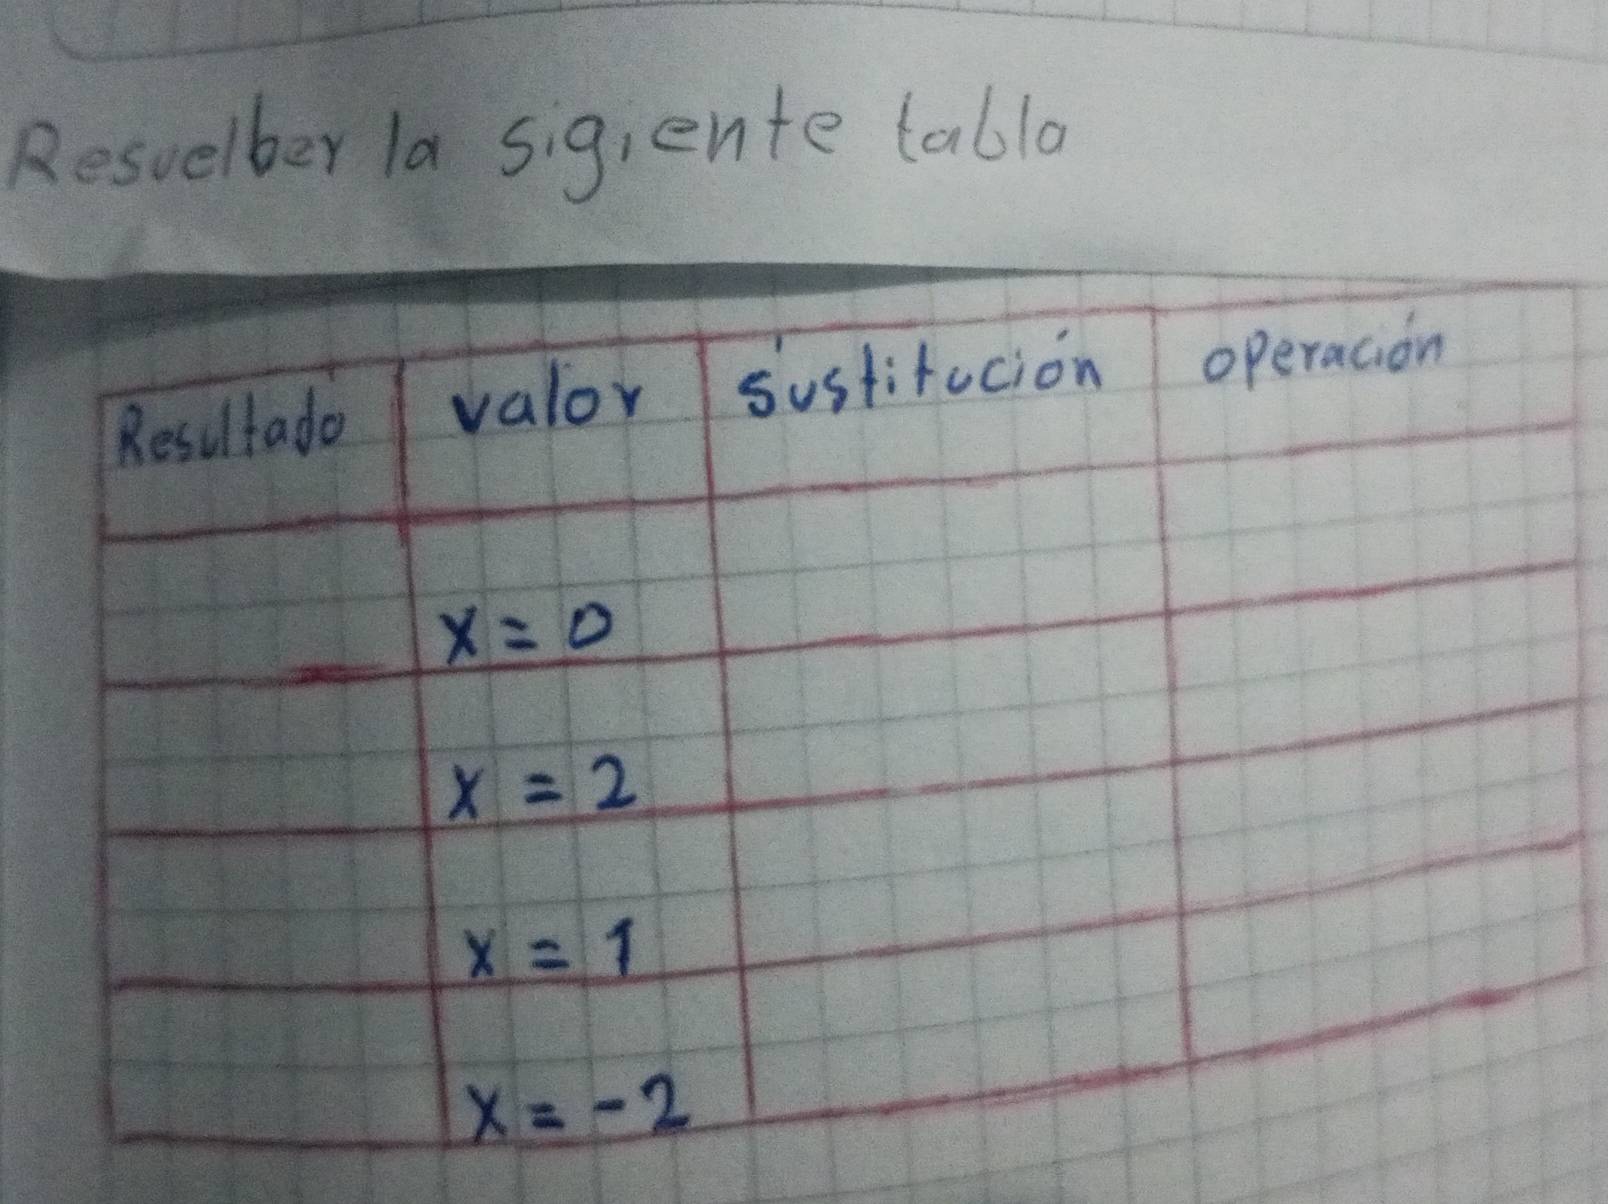 Resuelber la sigiente tabla
Resultado valor sustitución operación
x = 0
x = 2
x = 1
x = -2